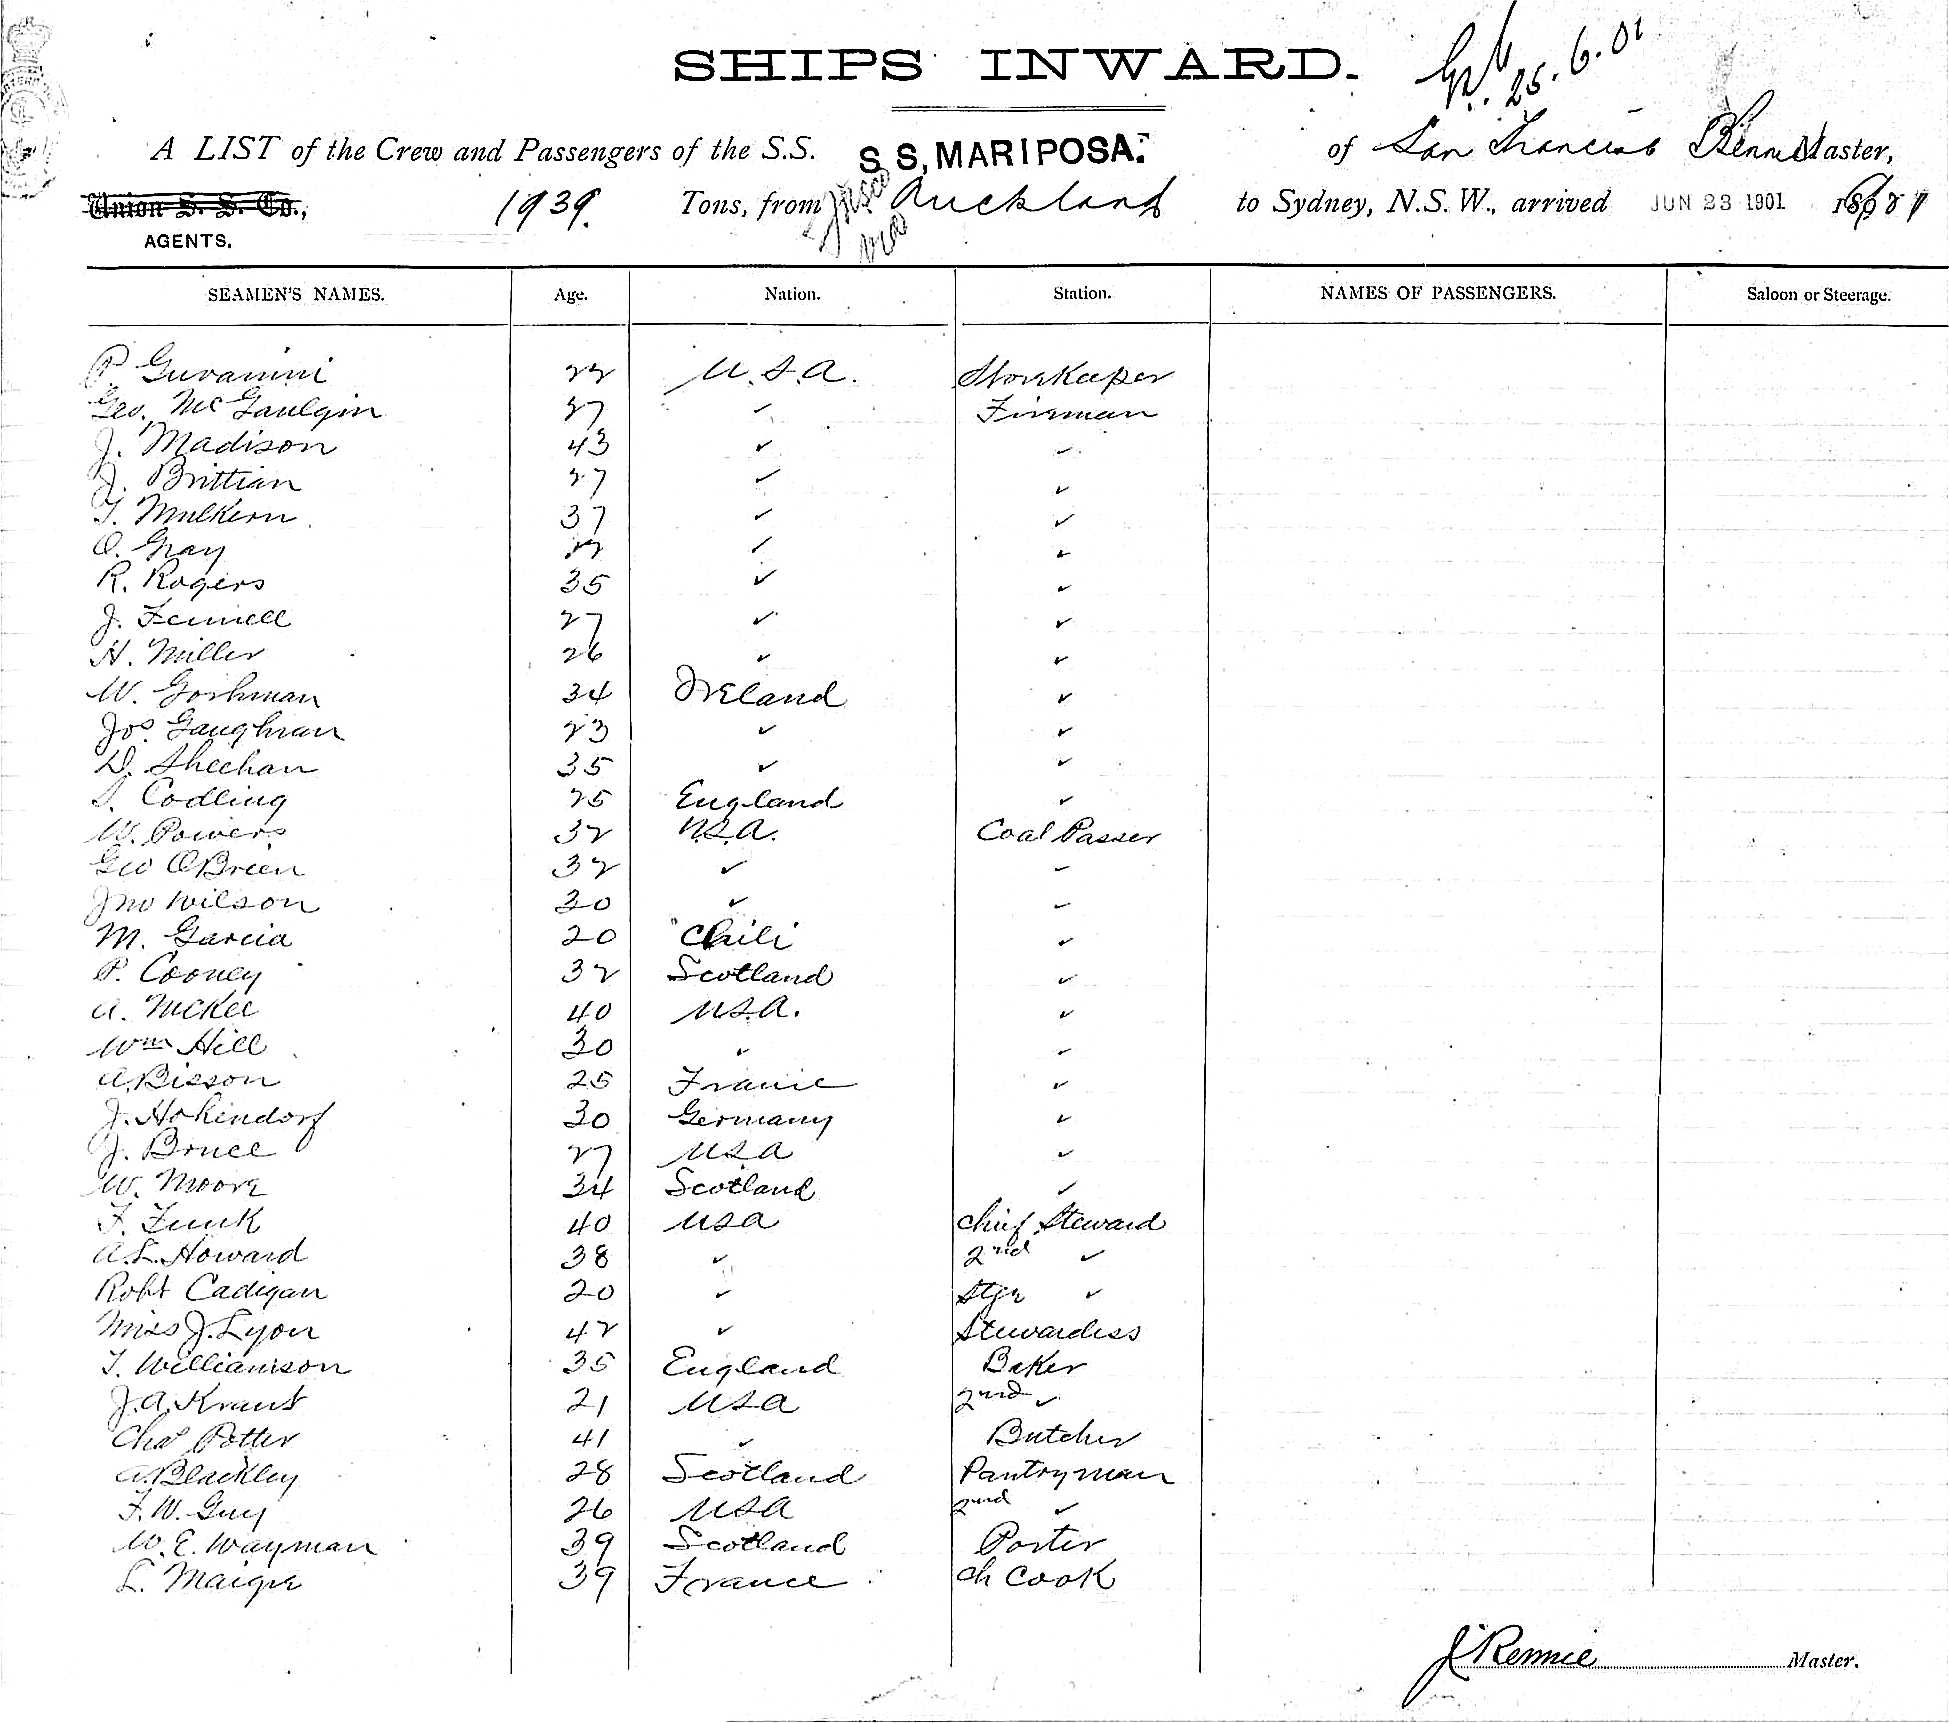 SHIPS INWARD.
25.6.01
A LIST of the Crew and Passengers of the S.S. S S, MARIPOSA. of San Francisco Rennie Master,
Union S. S. Co., 1939. Tons, from Frisco via Auckland to Sydney, N.S.W., arrived JUN 23 1901
AGENTS.
SEAMEN'S NAMES. Age. Nation. Station. NAMES OF PASSENGERS. Saloon or Steerage.
P. 22 U.S.A. Storekeeper
Geo. McGaulgin 27 ✓ Fireman
J. Madison 43 ✓ ✓
J. Brittian 27 ✓ ✓
T. Mulkern 37 ✓ ✓
O. Gray ✓ ✓
R. Rogers 35 ✓ ✓
J. Fennell 27 ✓ ✓
H. Miller 26 ✓ ✓
W. 34 Ireland ✓
Jos. Gaughran 23 ✓ ✓
D. Sheehan 35 ✓ ✓
Codling 25 England ✓
W. Powers 32 U.S.A. Coal Passer
Geo OBreen 32 ✓ ✓
Jno Wilson 30 ✓ ✓
M. Garcia 20 Chili ✓
P. Cooney 32 Scotland ✓
A. McKee 40 U.S.A. ✓
Wm Hill 30 ✓ ✓
A. Bisson 25 France ✓
J. Hokendorf 30 Germany ✓
J. Bruce 27 USA ✓
W. Moore 34 Scotland ✓
F. Funk 40 USA Chief Steward
A.L. Howard 38 ✓ 2nd ✓
Robt Cadigan 20 ✓ Stge ✓
Miss J. Lyon 42 ✓ Stewardess
T. Williamson 35 England Baker
J.A. Kraut 21 USA 2nd ✓
Chas Potter 41 ✓ Butcher
A. Blackley 28 Scotland Pantryman
F.W. Guy 26 USA 2nd ✓
W.E. Wayman 39 Scotland Porter
L. Maigre 39 France Ch Cook
J Rennie Master.